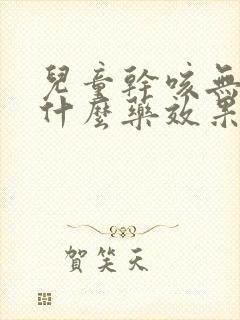 兒童幹咳無
什麼藥效果
賀笑天